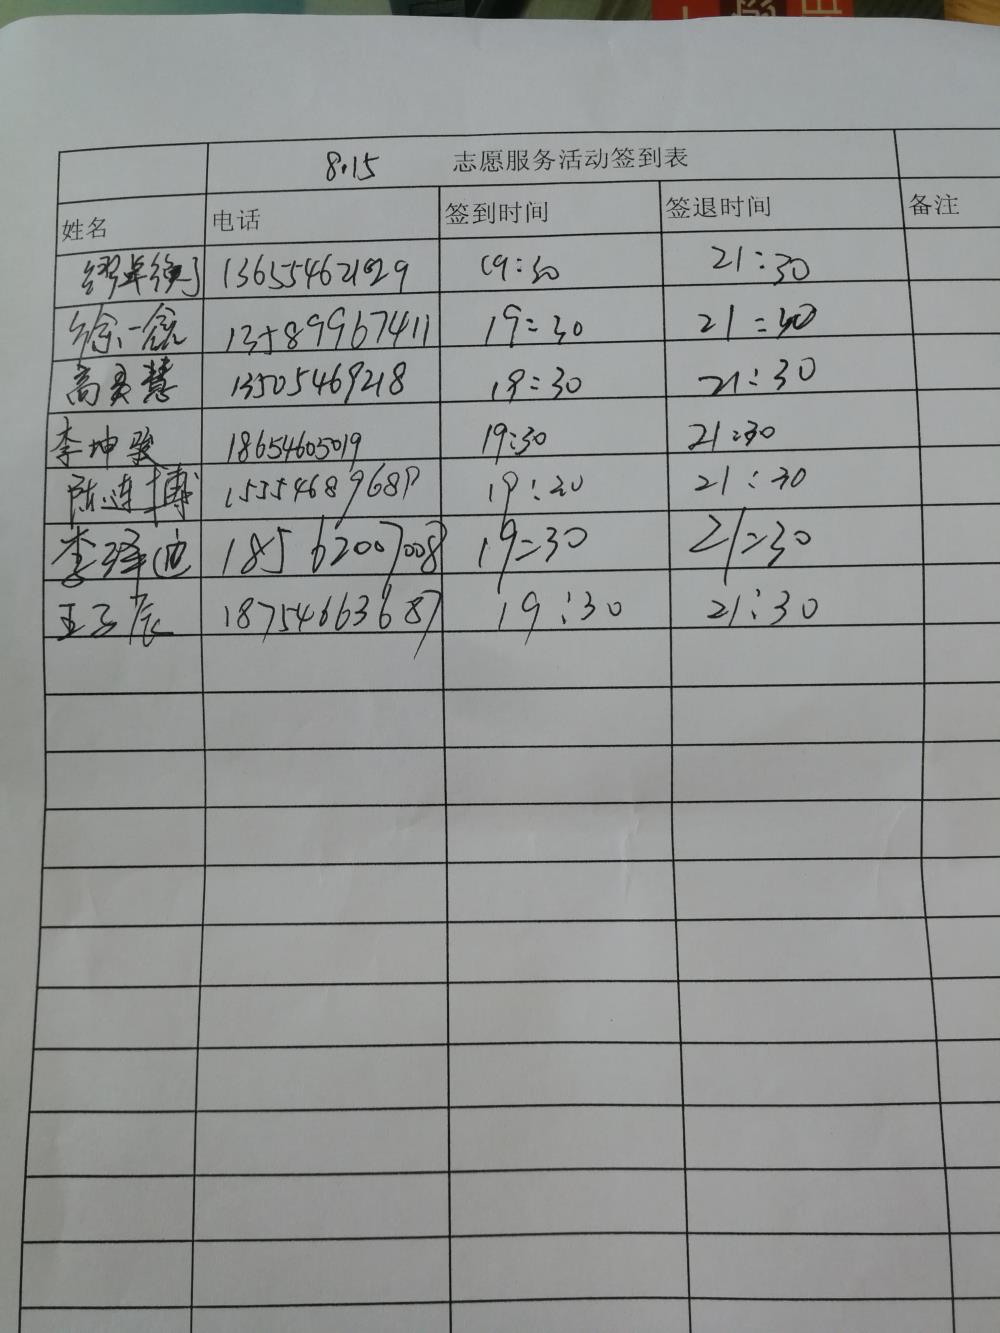 8.15 志愿服务活动签到表
姓名 电话 签到时间 签退时间 备注
缪卓 19:30 21:30
徐一 13589967411 19:30 21:30
高 慧 13505469218 19:30 21:30
李坤骏 18654605019 19:30 21:30
陈连博 19:30 21:30
李泽迪 18562007008 19:30 21:30
王子辰 18754663687 19:30 21:30